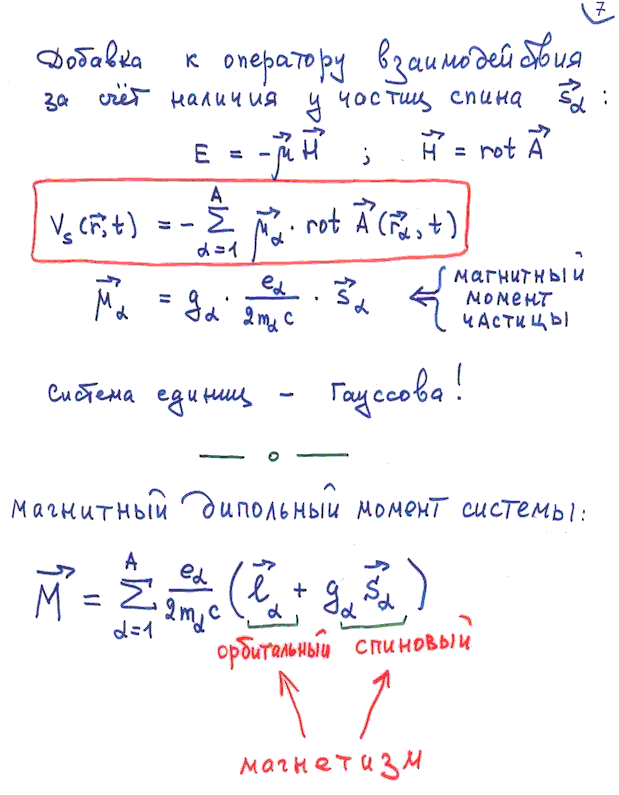 7
Добавка к оператору взаимодействия
за счёт наличия у частиц спина s⃗_α :
E = -μ⃗ H⃗ ; H⃗ = rot A⃗
V_s(r⃗, t) = - Σ_{α=1}^{A} μ⃗_α · rot A⃗(r⃗_α, t)
μ⃗_α = g_α · e_α/(2m_α c) · s⃗_α ⇐ { магнитный
момент
частицы
Система единиц – Гауссова!
— o —
магнитный дипольный момент системы:
M⃗ = Σ_{α=1}^{A} e_α/(2m_α c) (l⃗_α + g_α s⃗_α)
орбитальный спиновый
магнетизм